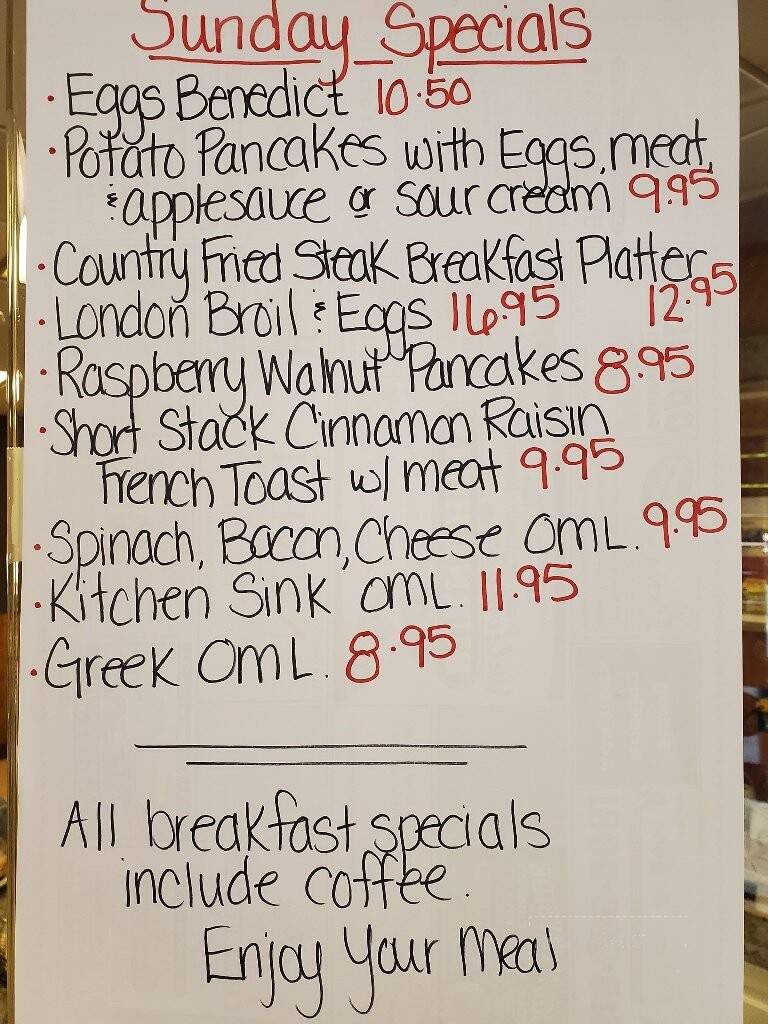 Sunday Specials
· Eggs Benedict 10.50
· Potato Pancakes with Eggs, meat,
& applesauce or sour cream 9.95
· Country Fried Steak Breakfast Platter 12.95
· London Broil & Eggs 16.95
· Raspberry Walnut Pancakes 8.95
· Short Stack Cinnamon Raisin
French Toast w/ meat 9.95
· Spinach, Bacon, Cheese OML. 9.95
· Kitchen Sink OML. 11.95
· Greek OML. 8.95
All breakfast specials
include coffee.
Enjoy Your Meal